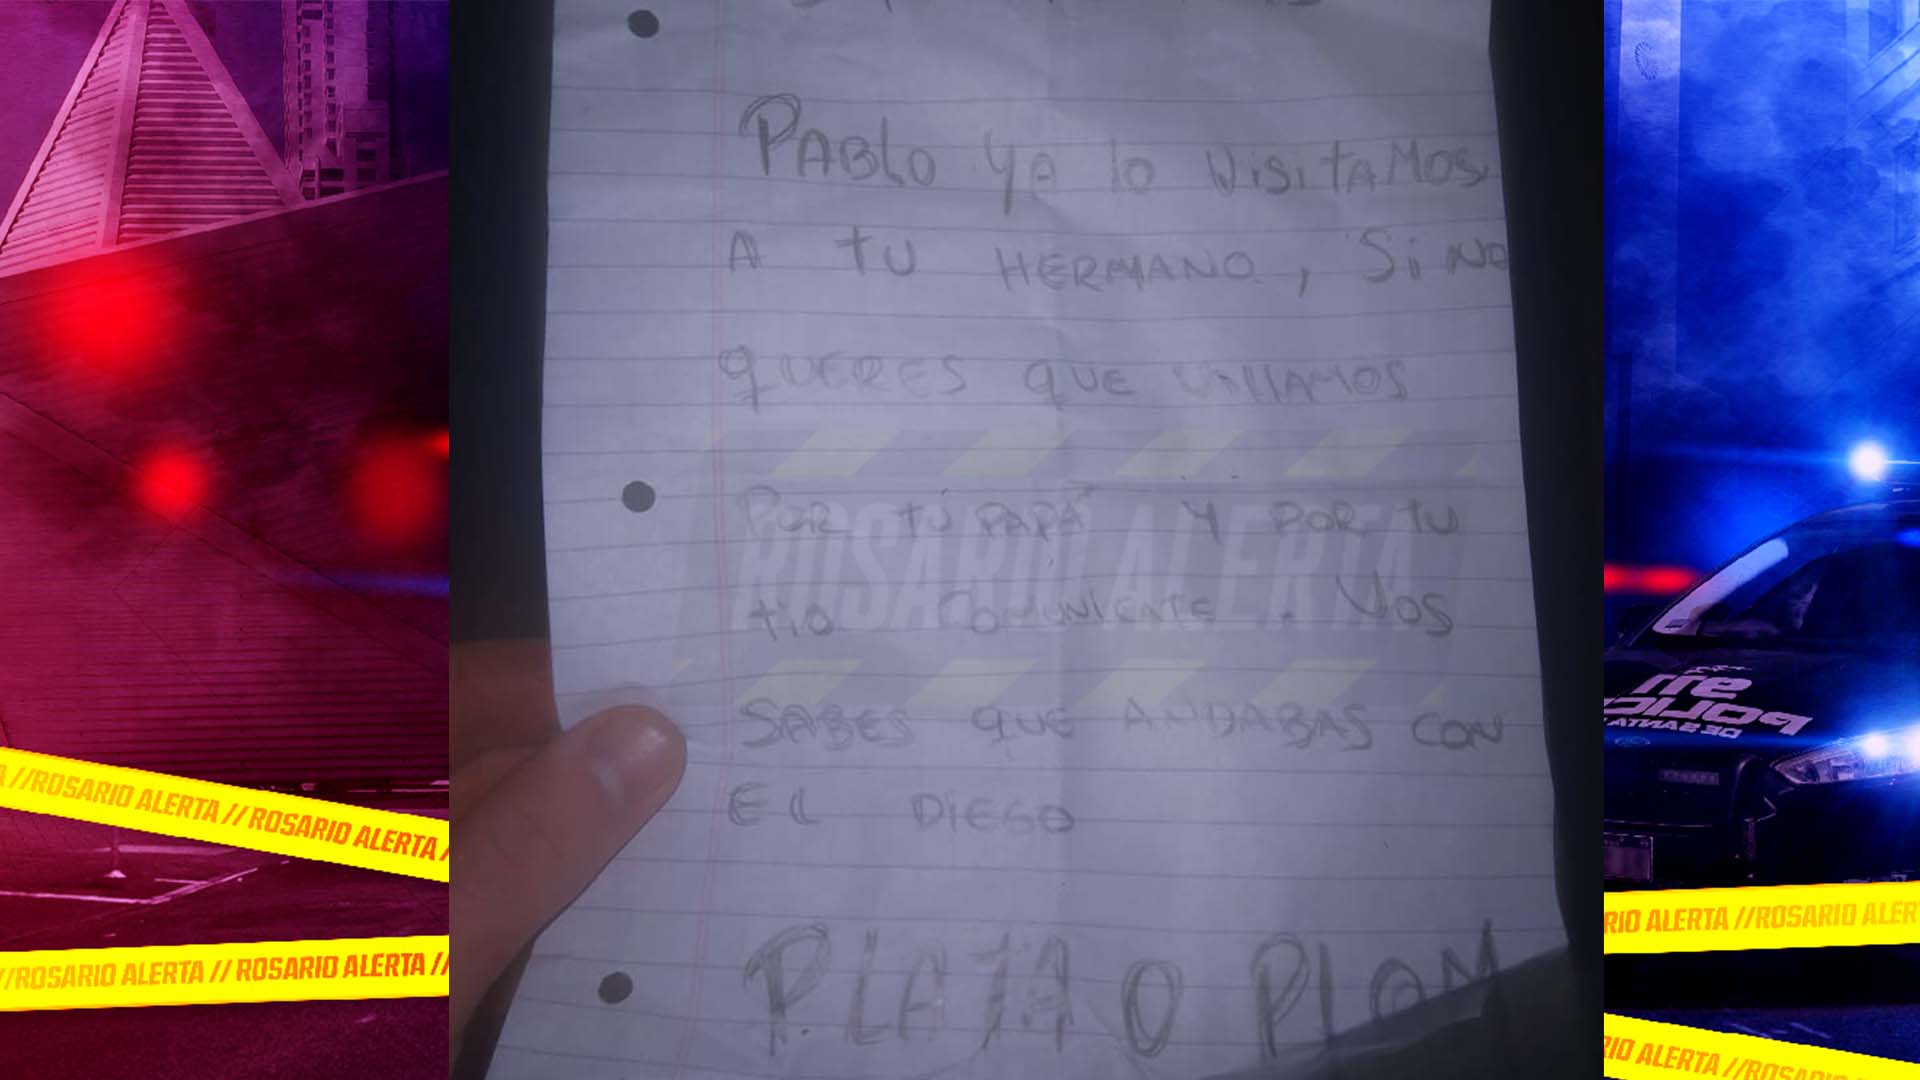 PABLO ya lo visitamos
A TU HERMANO, Si NO
QUERES QUE VAllAMOS
POR TÚ PAPÁ Y POR TU
tio COMUNICATE. VOS
SABES QUE ANDABAS CON
EL DIEGO
PLATA O PLOM
ROSARIO ALERTA
//ROSARIO ALERTA // ROSARIO ALERTA /
//ROSARIO ALERTA // ROSARIO ALERTA //
911
POLICIA
DE SANTA
RIO ALERTA //ROSARIO ALER
RIO ALERTA //ROSARIO